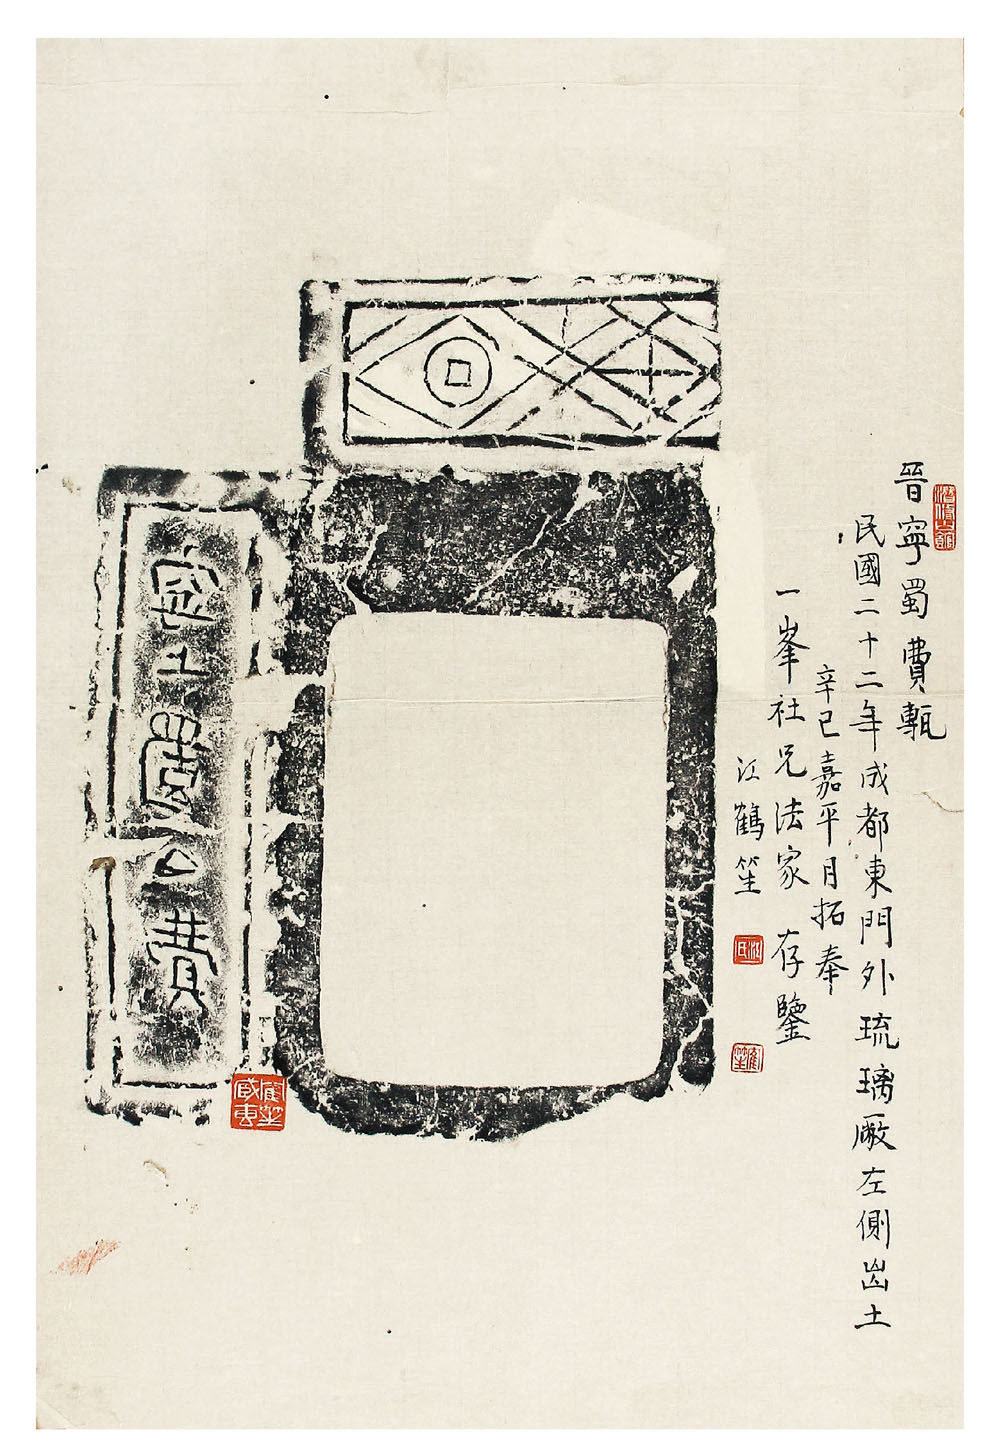 晉寧蜀費甎
民國二十二年成都東門外琉璃廠左側出土
辛巳嘉平月拓奉
一峯社兄法家存鑒
江鶴笙
江氏
鶴笙
寧蜀公費